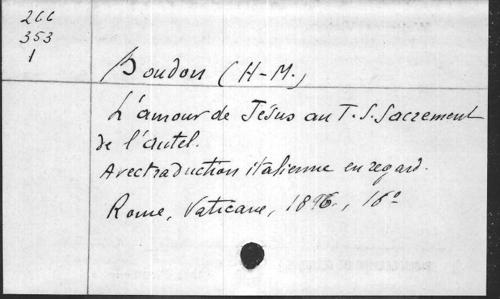 266
353
1
Boudon (H-M.)
L'amour de Jésus au T.S. Sacrement
de l'autel.
Avec traduction italienne en regard.
Rome, Vaticane, 1896, 16º